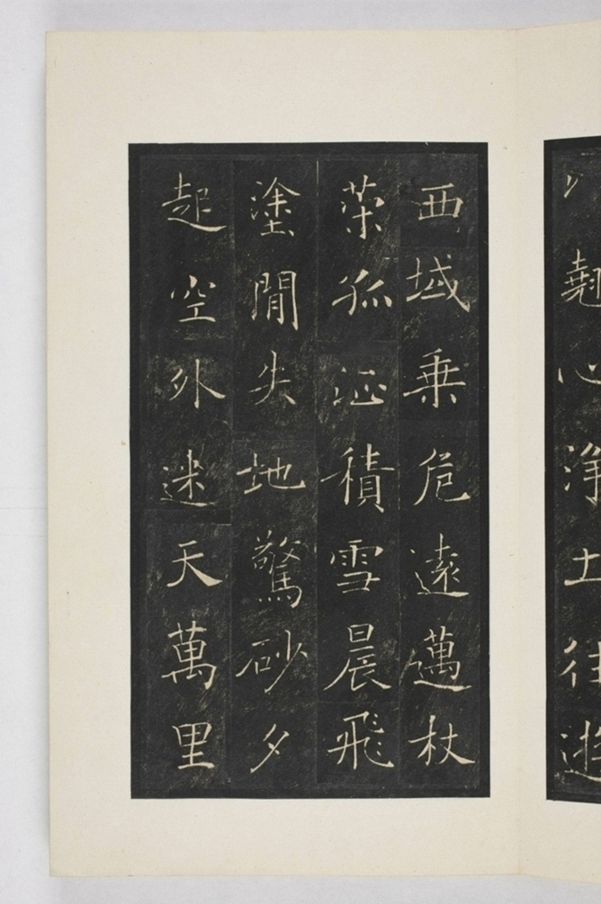 翹心淨土往遊
西域乘危遠邁杖
策孤征積雪晨飛
塗閒失地驚砂夕
起空外迷天萬里